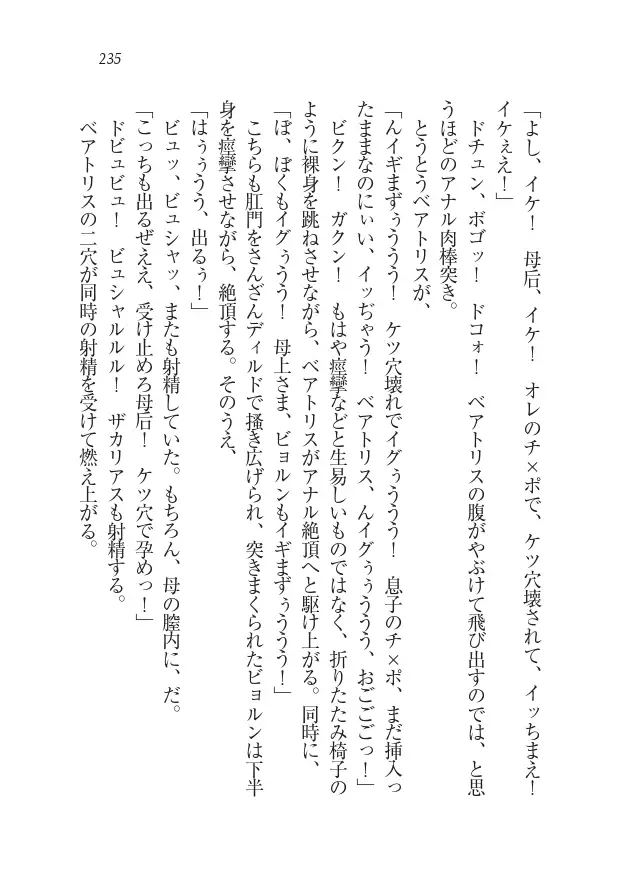 235
「よし、イケ！　母后、イケ！　オレのチ×ポで、ケツ穴壊されて、イッちまえ！
イケぇえ！」
ドチュン、ボゴッ！　ドコォ！　ベアトリスの腹がやぶけて飛び出すのでは、と思
うほどのアナル肉棒突き。
とうとうベアトリスが、
「んイギまずぅううう！　ケツ穴壊れでイグぅううう！　息子のチ×ポ、まだ挿入っ
たままなのにぃい、イッぢゃう！　ベアトリス、んイグぅぅううう、おごごごっ！」
ビクン！　ガクン！　もはや痙攣などと生易しいものではなく、折りたたみ椅子の
ように裸身を跳ねさせながら、ベアトリスがアナル絶頂へと駆け上がる。同時に、
「ぼ、ぼくもイグぅうう！　母上さま、ビョルンもイギまずぅううう！」
こちらも肛門をさんざんディルドで掻き広げられ、突きまくられたビョルンは下半
身を痙攣させながら、絶頂する。そのうえ、
「はぅぅうう、出るぅ！」
ビュッ、ビュシャッ、またも射精していた。もちろん、母の膣内に、だ。
「こっちも出るぜええ、受け止めろ母后！　ケツ穴で孕めっ！」
ドビュビュ！　ビュシャルルル！　ザカリアスも射精する。
ベアトリスの二穴が同時の射精を受けて燃え上がる。